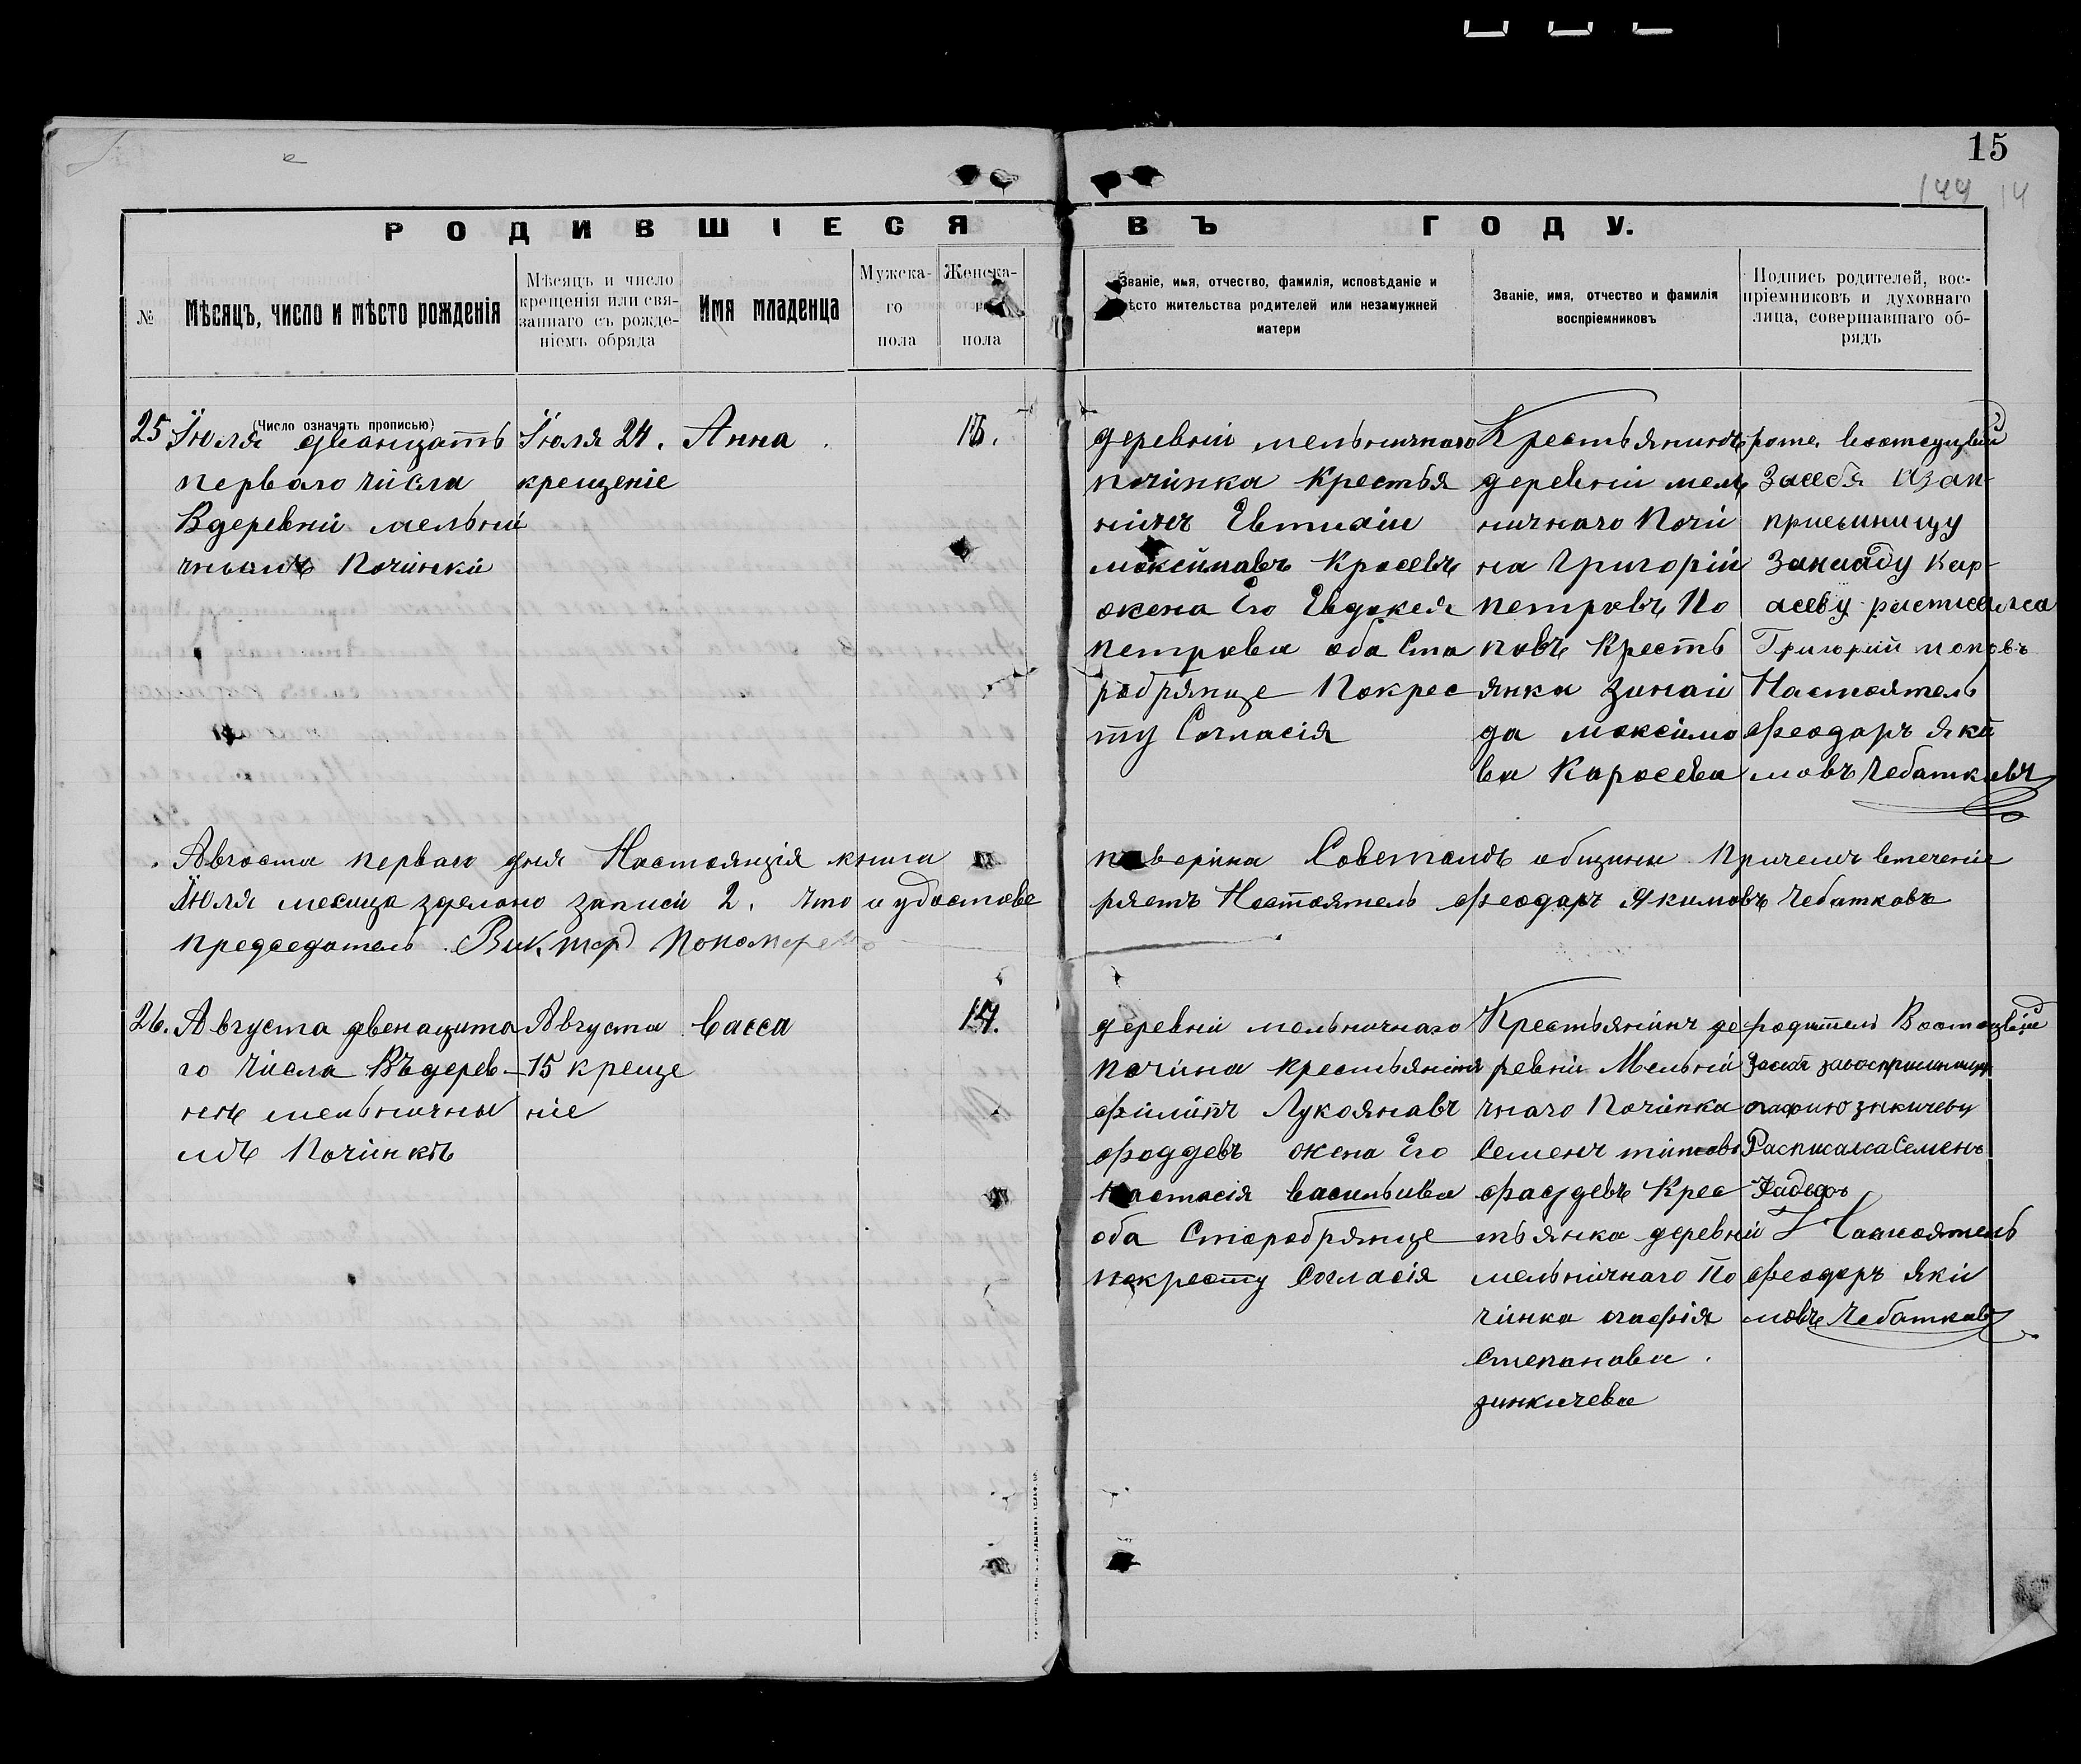 15
144 14
РОДИВШІЕСЯ ВЪ ГОДУ.
№
Мѣсяцъ, число и мѣсто рожденія
Мѣсяцъ и число
крещенія или свя-
заннаго съ рожде-
ніемъ обряда
Имя младенца
Мужска-
го
пола
Женска-
го
пола
Званіе, имя, отчество, фамилія, исповѣданіе и
мѣсто жительства родителей или незамужней
матери
Званіе, имя, отчество и фамилія
воспріемниковъ
Подпись родителей, вос-
пріемниковъ и духовнаго
лица, совершавшаго об-
рядъ
(Число означать прописью)
25
Іюля двацать
перваго числа
Вдеревни мельни
чномъ Починки
Іюля 24.
крещеніе
Анна
деревни мельничнаго
починка Крестья
нинъ
максимавъ
жена Его Евдокея
петрова оба Ста
робрянце Покрес
ту Согласія
Крестьянинъ
деревни мель
ничнаго Почи
на Григорій
петровъ По
повъ Кресть
янка Зинаи
да максимо
ва Каросева
засебя
приемницу
Григорий поповъ
Настоятель
феодаръ Яки
мовъ Чебатковъ
Августа перваго дня Настоящія книга
поверина Советомъ общины Причемъ втечение
Июля месяца зделано записи 2. что и удостове
ряетъ Настоятель феодаръ Якимовъ Чебатковъ
председатель Виктор
26.
Августа двенацато
го Числа Въ дерев-
не мельничны
мъ Починкъ
Августа
15 креще
ніе
Васса
14.
деревни мельничнаго
почина крестьянинъ
филипъ Лукоянавъ
фаддевъ жена Его
Настасія васильива
оба Старобрянце
покресту Согласія
Крестьянинъ де
ревни Мельни
чнаго Починка
Семенъ
фаддевъ Крес
тьянка деревни
мельничнаго По
чинка агафія
степанава
зинкичева
родитель
огафию зикичеву
Расписалса Семенъ
Настоятель
феодаръ Яки
мовъ Чебатковъ